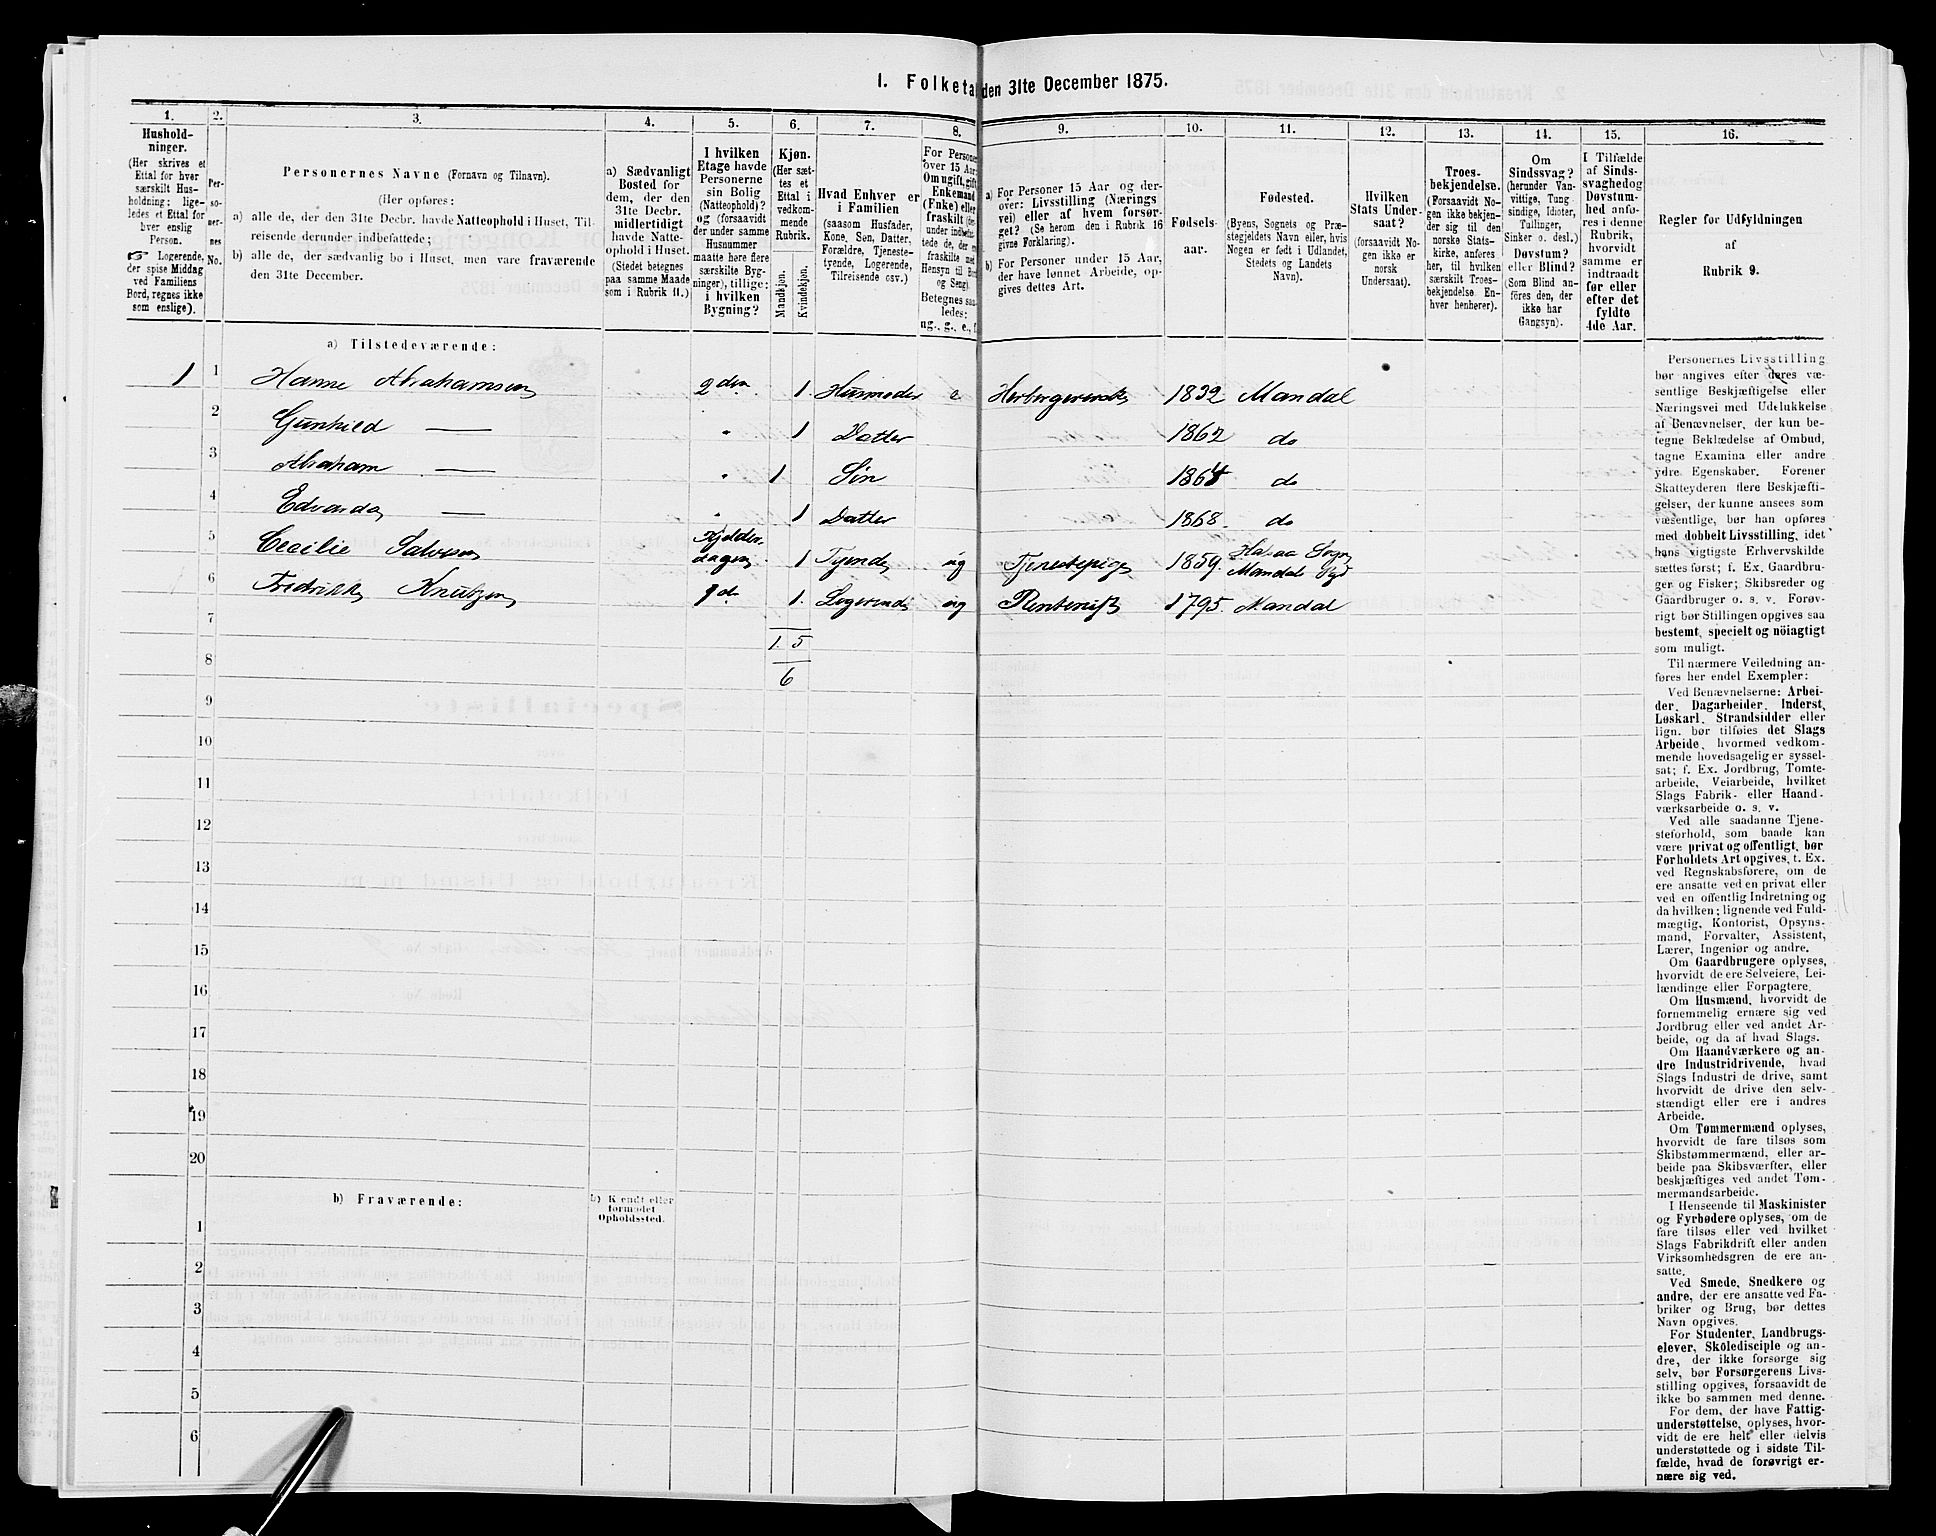 1. Folketal den 31te December 1875.
1. 2. 3. 4. 5. 6. 7. 8. 9. 10. 11. 12. 13. 14. 15. 16.
Hushold-
ninger.
(Her skrives et
Ettal for hver
særskilt Hus-
holdning; lige-
ledes et Ettal for
hver enslig
Person.
☞ Logerende,
der spise Middag
ved Familiens
Bord, regnes ikke
som enslige).
Per-
so-
ner-
nes
No.
Personernes Navne (Fornavn og Tilnavn).
(Her opføres:
a) alle de, der den 31te Decbr. havde Natteophold i Huset, Til-
reisende derunder indbefattede;
b) alle de, der sædvanlig bo i Huset, men vare fraværende
den 31te December.
a) Sædvanligt
Bosted for
dem, der den
31te Decbr.
midlertidigt
havde Natte-
ophold i Huset.
(Stedet betegnes
paa samme Maade
som i Rubrik 11.)
I hvilken
Etage havde
Personerne
sin Bolig
(Natteophold)?
og (forsaavidt
der under samme
Husnummer
maatte høre flere
særskilte Byg-
ninger), tillige:
i hvilken
Bygning?
Kjøn.
(Her sæt-
tes et
Ettal i
vedkom-
mende
Rubrik.
Mandkjøn.
Kvindekjøn.
Hvad Enhver er
i Familien
(saasom Husfader,
Kone, Søn, Datter,
Forældre, Tjeneste-
tyende, Logerende,
Tilreisende osv.)
For Personer
over 15 Aar:
Om ugift, gift,
Enkemand
(Enke) eller
fraskilt (der-
under indbefat-
tede de, der ere
fraskilte med
Hensyn til Bord
og Seng).
Betegnes saa-
ledes:
ug., g., e., f.
a) For Personer 15 Aar og der-
over: Livsstilling (Nærings
vei) eller af hvem forsør-
get? (Se herom den i Rubrik 16
givne Forklaring).
b) For Personer under 15 Aar,
der have lønnet Arbeide, op-
gives dettes Art.
Fødsels-
aar.
Fødested.
(Byens, Sognets og Præ-
stegjeldets Navn eller, hvis
Nogen er født i Udlandet,
Stedets og Landets
Navn).
Hvilken
Stats Under-
saat?
(forsaavidt No-
gen ikke er
norsk
Undersaat).
Troes-
bekjendelse.
(Forsaavidt No-
gen ikke bekjen-
der sig til den
norske Stats-
kirke, anføres
her, til hvilken
særskilt Troes-
bekjendelse En-
hver henhører).
Om
Sindssvag?
(herunder Van-
vittige, Tung-
sindige, Idioter,
Tullinger,
Sinker o. desl.)
Døvstum?
eller Blind?
(Som Blind an-
føres den, der
ikke har
Gangsyn).
I Tilfælde
af Sinds-
svaghed og
Døvstum-
hed anfø-
res i denne
Rubrik,
hvorvidt
samme er
indtraadt
før eller
efter det
fyldte
4de Aar.
Regler før Udfyldningen
af
Rubrik 9.
a) Tilstedeværende:
1 1 Hanne Abrahamsen 2den 1. Husmoder e Herbergererske 1832 Mandal
2 Gunhild — " 1 Datter 1862 do
3 Abraham — " 1 Søn 1864 do
4 Edvarda — " 1 Datter 1868. do
5 Cecilie Salvesen Kjelder-
etagen 1 Tyende ug Tjenestepige 1859. Halsaa Sogn
Mandals Pgd
6 Fredrikke Knutzen 1d. 1. Logerende ug Rentenist 1795. Mandal
7 1. 5
8 6
9
10
11
12
13
14
15
16
17
18
19
20
b) Fraværende:
b) Kjendt eller
formodet
Opholdssted.
1
2
3
4
5
6
Personernes Livsstilling
bør angives efter deres væ-
sentlige Beskjæftigelse eller
Næringsvei med Udelukkelse
af Benævnelser, der kun be-
tegne Beklædelse af Ombud,
tagne Examina eller andre
ydre Egenskaber. Forener
Skatteyderen flere Beskjæfti-
gelser, der kunne ansees som
væsentlige, bør han opføres
med dobbelt Livsstilling, idet
hans vigtigste Erhvervskilde
sættes først; f. Ex. Gaardbru-
ger og Fisker; Skibsreder og
Gaardbruger o. s. v. Forøv-
rigt bør Stillingen opgives saa
bestemt, specielt og nöiagtigt
som muligt.
Til nærmere Veiledning an-
føres her endel Exempler:
Ved Benævnelserne: Arbei-
der, Dagarbeider, Inderst,
Løskarl, Strandsidder eller
lign. bør tilføies det Slags
Arbeide, hvormed vedkom-
mende hovedsagelig er syssel-
sat; f. Ex. Jordbrug, Tomte-
arbeide, Veiarbeide, hvilket
Slags Fabrik- eller Haand-
værksarbeide o. s. v.
Ved alle saadanne Tjene-
steforhold, som baade kan
være privat og offentligt, bør
Forholdets Art opgives, t. Ex.
ved Regnskabsførere, om de
ere ansatte ved en privat eller
ved en offentlig Indretning og
da hvilken; lignende ved Fuld-
mægtig, Kontorist, Opsyns-
mand, Forvalter, Assistent,
Lærer, Ingeniør og andre.
Om Gaardbrugere oplyses,
hvorvidt de ere Selveiere, Lei-
lændinge eller Forpagtere.
Om Husmænd, hvorvidt de
fornemmelig ernære sig ved
Jordbrug eller ved andet Ar-
beide, og da af hvad Slags.
Om Haandværkere og an-
dre Industridrivende, hvad
Slags Industri de drive, samt
hvorvidt de drive den selv-
stændigt eller ere i andres
Arbeide.
Om Tømmermænd oplyses,
hvorvidt de fare tilsøs som
Skibstømmermænd, eller ar-
beide paa Skibsværfter, eller
beskjæftiges ved andet Tøm-
mermandsarbeide.
I Henseende til Maskinister
og Fyrbødere oplyses, om de
fare tilsøs eller ved hvilket
Slags Fabrikdrift eller anden
Virksomhedsgren de ere an-
satte.
Ved Smede, Snedkere og
andre, der ere ansatte ved Fa-
briker og Brug, bør dettes
Navn opgives.
For Studenter, Landbrugs-
elever, Skoledisciple og an-
dre, der ikke forsørge sig
selv, bør Forsørgerens Livs-
stilling opgives, forsaavidt de
ikke bo sammen med denne.
For dem, der have Fattig-
understøttelse, oplyses, hvor-
vidt de ere helt eller delvis
understøttede og i sidste Til-
fælde, hvad de forøvrigt er-
nære sig ved.